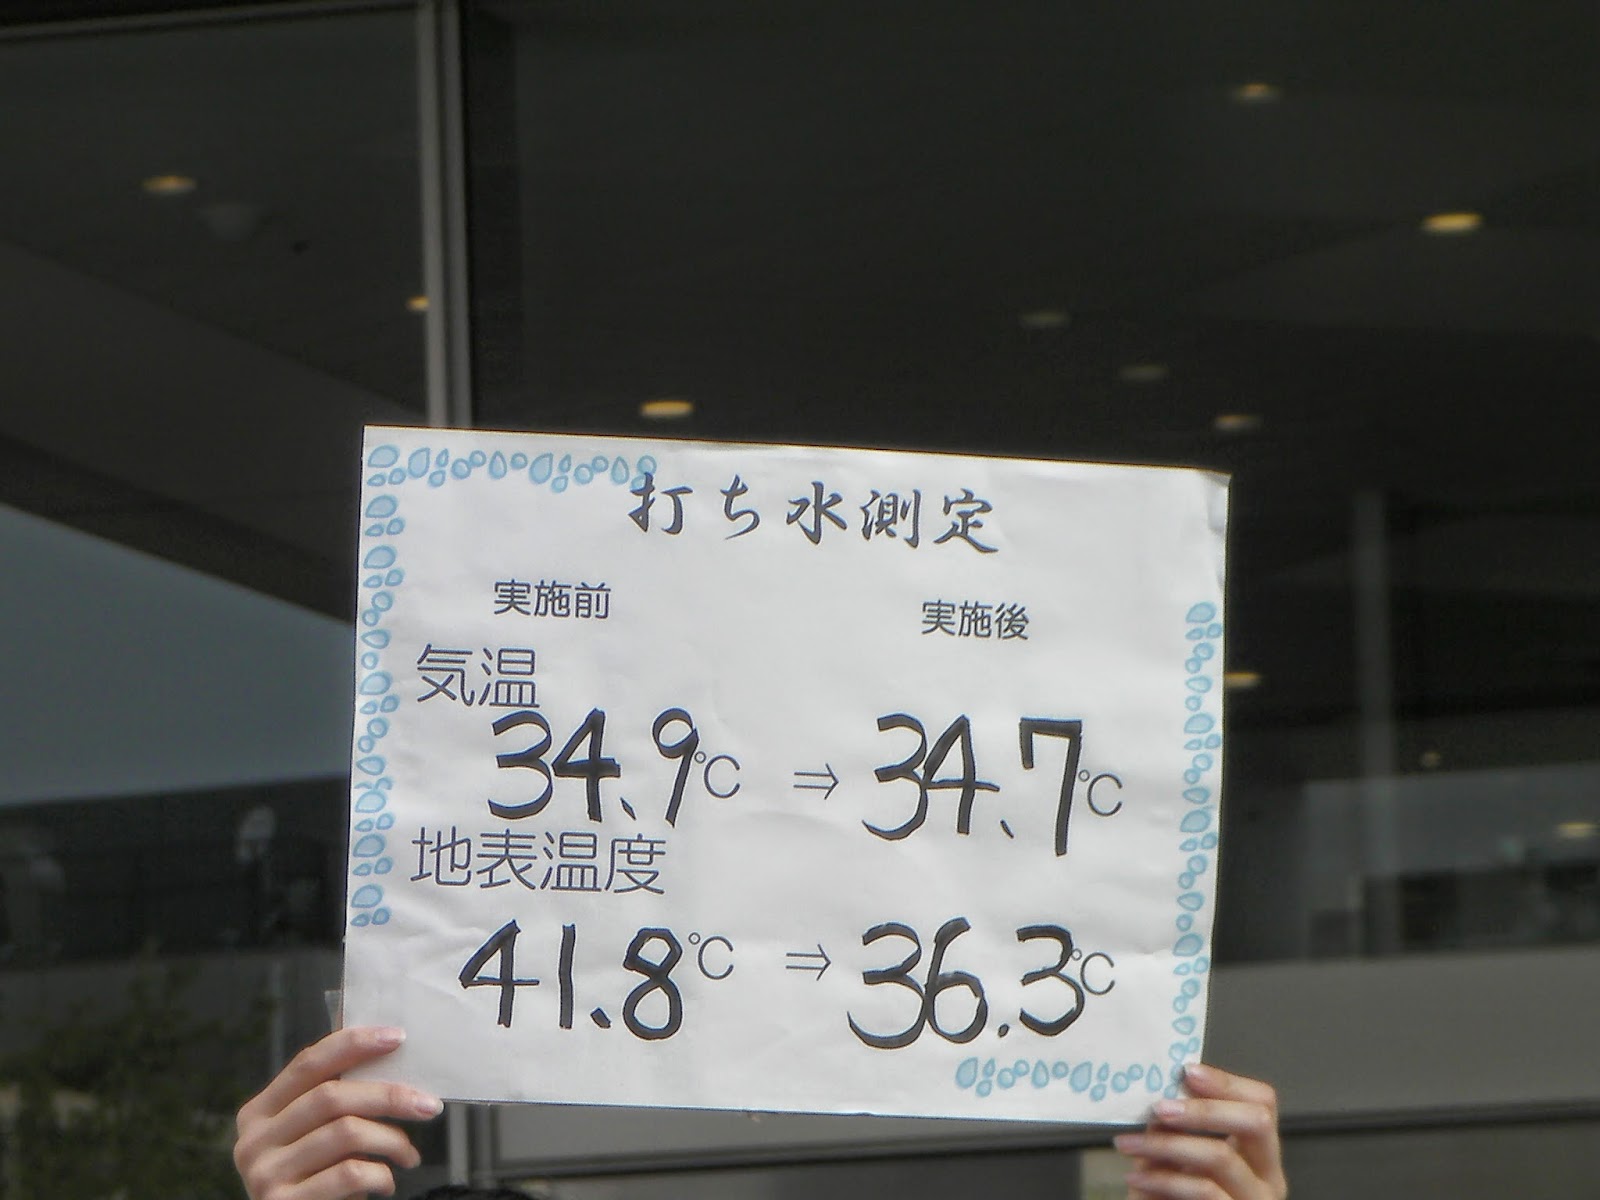 打ち水測定
実施前 実施後
気温
34.9℃ ⇒ 34.7℃
地表温度
41.8℃ ⇒ 36.3℃